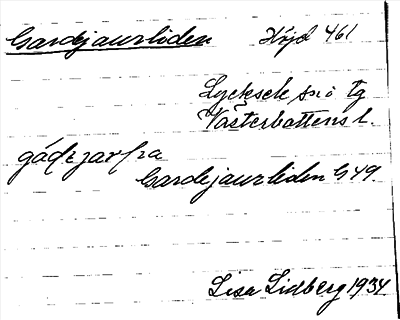 Gardejaurliden Höjd 461
Lycksele sn tg
Västerbottens l.
Gardejaurliden G 49.
Lisa Lidberg 1934